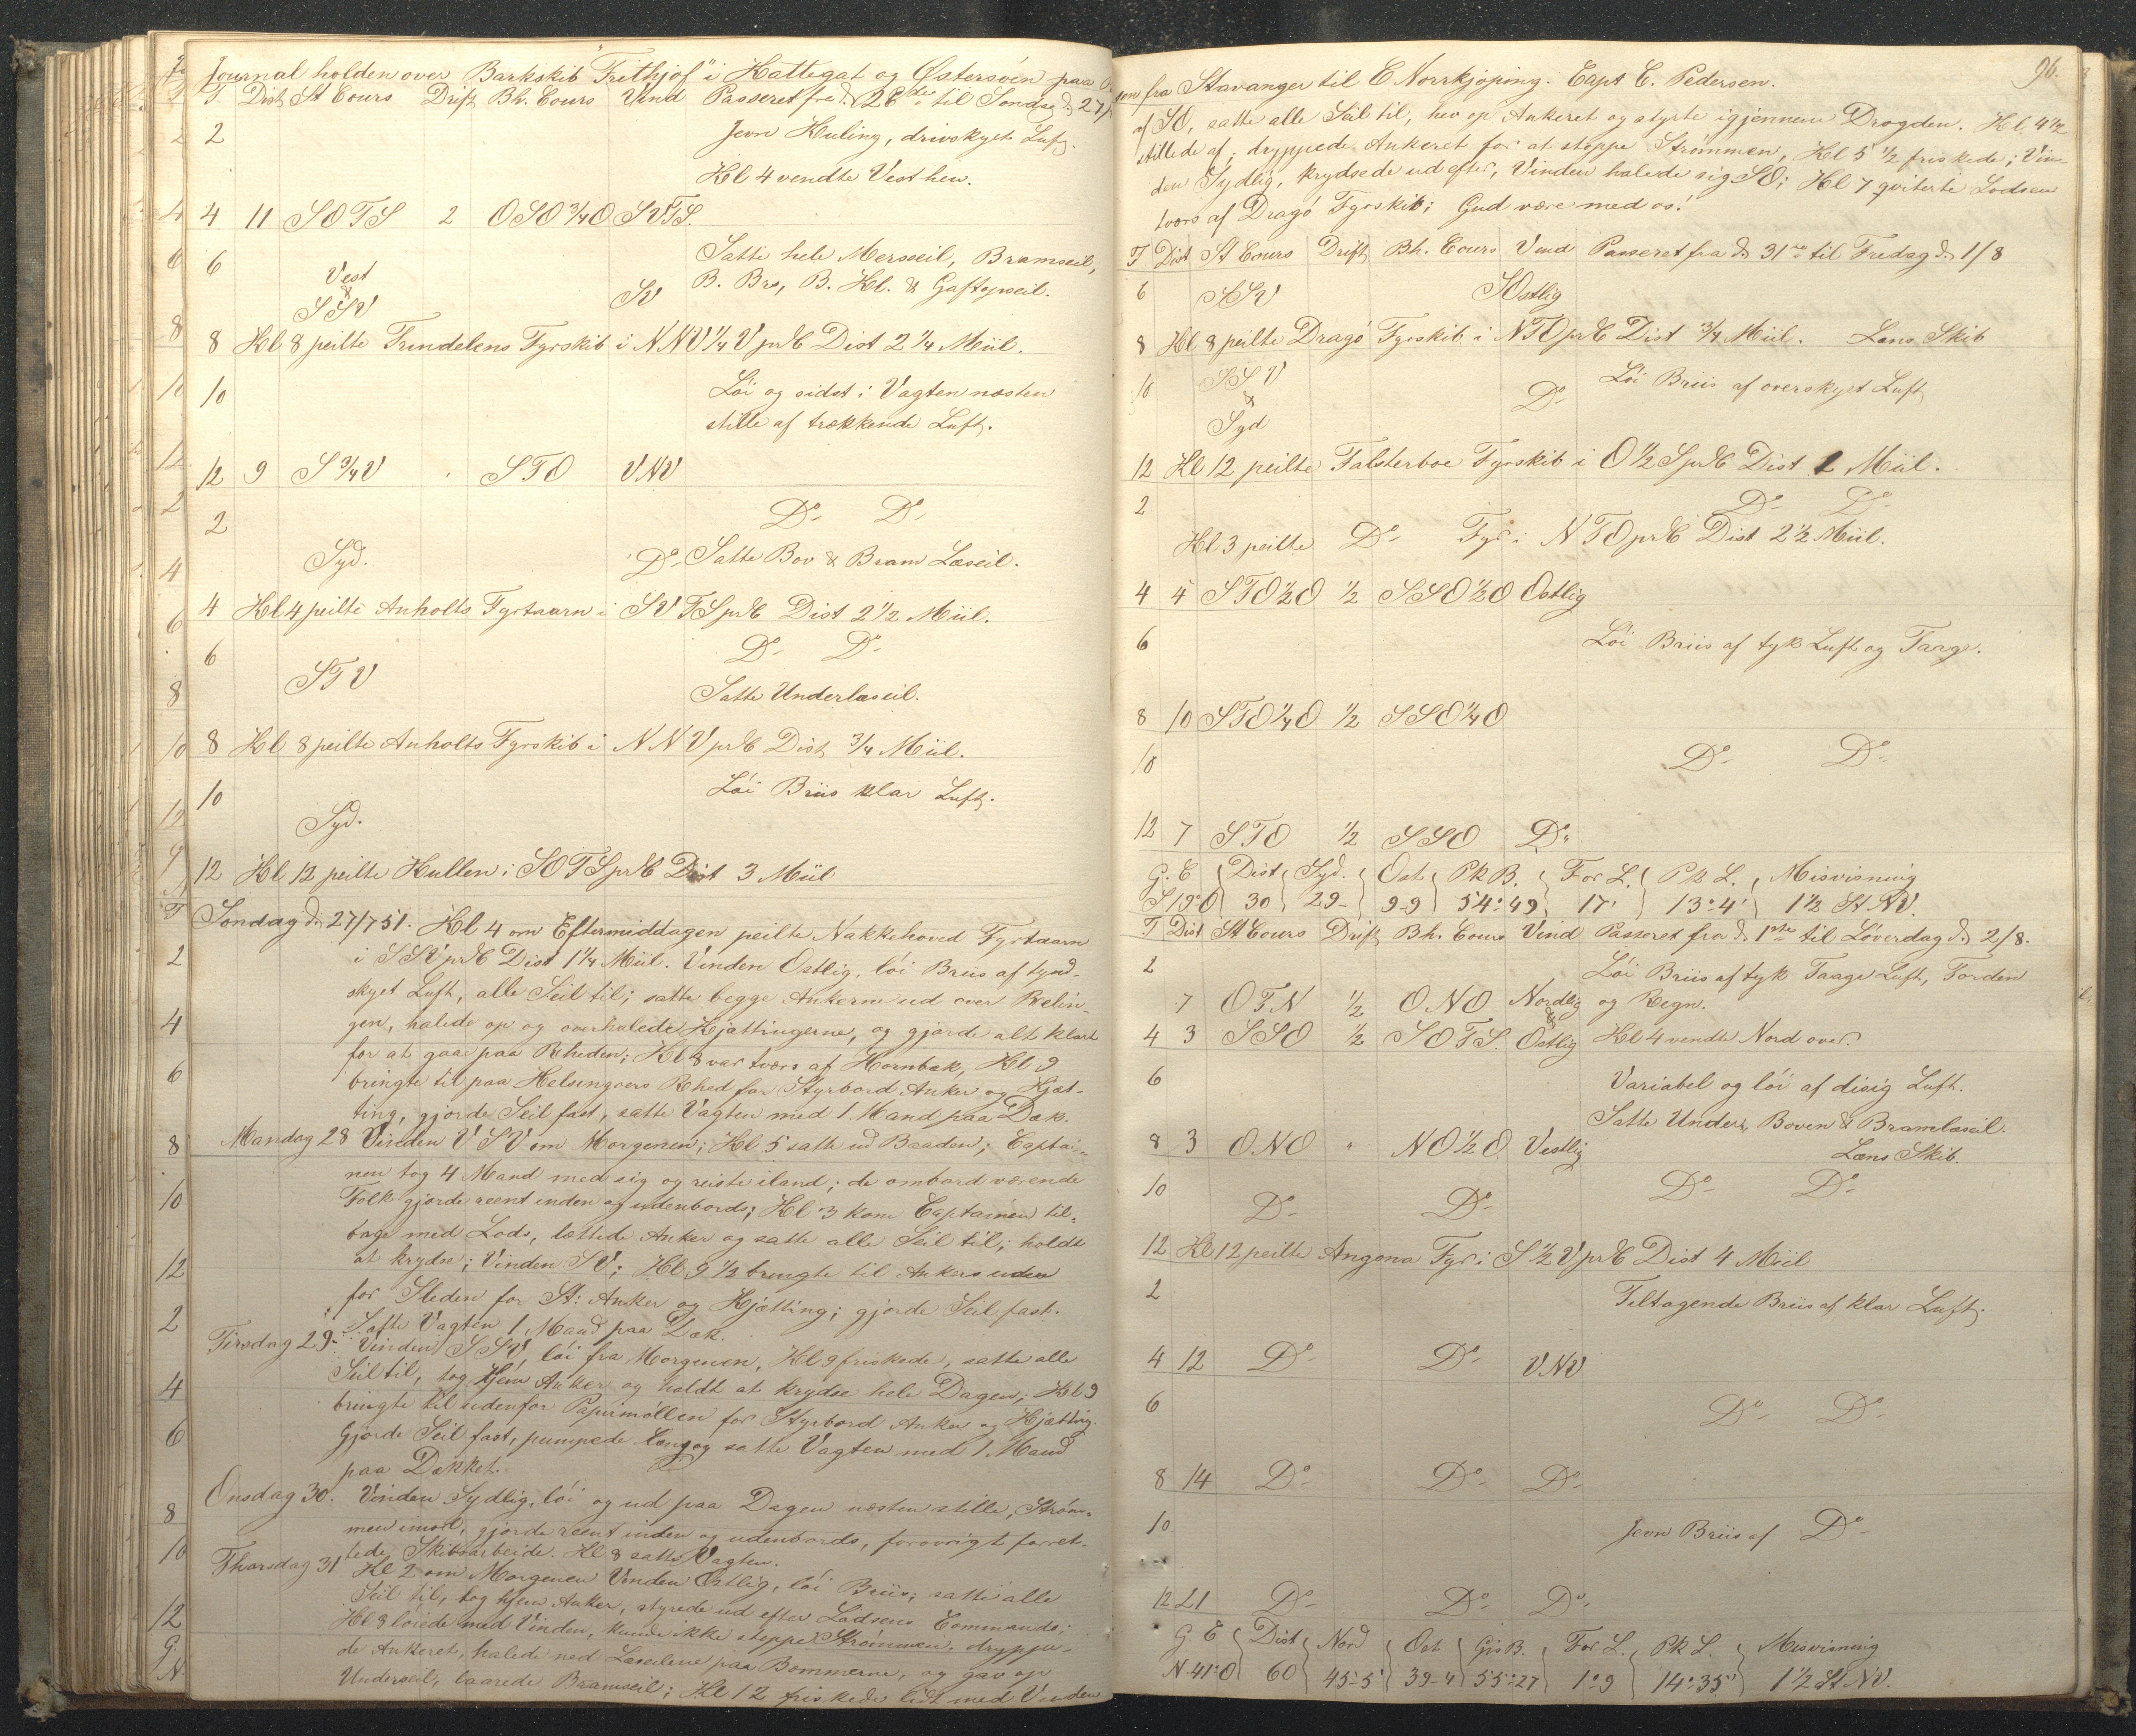 Journal holden over Barkskib "Frithjof" i Kattegat og Østersøen paa
T Dist St Cours Drift Bh. Cours Vind Passeret fra d. 26de til Søndag d. 27/7
2 Jevn Kuling, drivskyet Luft.
Kl 4 vendte Vest hen.
4 11 SOTS 2 OSO 3/4 O SVTS.
6 Satte hele Mersseil, Bramseil,
Vest & SSV SV B. Brs, B. Kl. & Gaftopseil.
8 Kl 8 peilte Trindelens Fyrskib i NNV 1/4 V pr C Dist 2 1/4 Miil.
10 Løi og sidst i Vagten næsten
stille af trækkende Luft.
12 9 S 3/4 V " STO VNV
2 Do Do
Syd. Do Satte Bov & Bram Læseil.
4 Kl 4 peilte Anholts Fyrtaarn i SVTS pr C Dist 2 1/2 Miil.
6 Do Do
STV Satte Underlæseil.
8 Kl 8 peilte Anholts Fyrskib i NNV pr C Dist 3/4 Miil.
10 Løi Briis klar Luft.
Syd.
12 Kl 12 peilte Kullen i SOTS pr C Dist 3 Miil
Søndag d. 27/7 51. Kl 4 om Eftermiddagen peilte Nakkehoved Fyrtaarn
i SSV pr C Dist 1 1/4 Miil. Vinden Ostlig, løi Briis af tynd-
skyet Luft, alle Seil til; satte begge Ankerne ud over Relin-
gen, halede op og overhalede Kjættingerne, og gjorde alt klart
for at gaae paa Rheden; Kl 8 var tværs af Hornbæk, Kl 9
bringte til paa Helsingøers Rhed for Styrbord Anker og Kjæt-
ting, gjorde Seil fast, satte Vagten med 1 Mand paa Dæk.
Mandag 28 Vinden VSV om Morgenen; Kl 5 satte ud Baaden; Captai-
nen tog 4 Mand med sig og reiste iland; de ombord værende
Folk gjorde reent inden og udenbords; Kl 3 kom Captainen til-
bage med Lods, lettede Anker og satte alle Seil til; holdt
at krydse; Vinden SV; Kl 9 1/2 bringte til Ankers uden
for Sleden for St: Anker og Kjætting; gjorde Seil fast.
Satte Vagten 1 Mand paa Dæk.
Tirsdag 29. Vinden SSV, løi fra Morgenen, Kl 9 friskede, satte alle
Seil til, tog hjem Anker og holdt at krydse hele Dagen; Kl 9
bringte til udenfor Papirmøllen for Styrbord Anker og Kjætting.
Gjorde Seil fast, pumpede læns og satte Vagten med 1 Mand
paa Dækket.
Onsdag 30. Vinden Sydlig, løi og ud paa Dagen næsten stille, Strøm-
men imod, gjorde reent inden og udenbords, forøvrigt forret-
tede Skibsarbeide. Kl 8 satte Vagten.
Thorsdag 31 Kl 2 om Morgenen Vinden Ostlig, løi Briis; satte alle
Seil til, tog hjem Anker, styrede ud efter Lodsens Commando;
Kl 8 løiede med Vinden, kunde ikke stoppe Strømmen, dryppe-
de Ankeret, halede ned Læseilene paa Bommerne, og gav op
Underseil, laarede Bramseil; Kl 12 friskede lidt med Vinden
96.
fra Stavanger til E Norrkjøping. Capt C. Pedersen.
af SO, satte alle Seil til, hev op Ankeret og styrte igjennem Drogden. Kl 4 1/2
stillede af; dryppede Ankeret for at stoppe Strømmen, Kl 5 1/2 friskede; Vin-
den Sydlig, krydsede ud efter, Vinden halede sig SO; Kl 7 qviterte Lodsen
tværs af Dragø Fyrskib; Gud være med os!
T Dist St Cours Drift Bh. Cours Vind Passeret fra d. 31te til Fredag d. 1/8
6 SSV SOstlig
8 Kl 8 peilte Dragø Fyrskib i NTO pr C Dist 3/4 Miil. Læns Skib
10 SSV & Syd Do Løi Briis af overskyet Luft
12 Kl 12 peilte Falsterboe Fyrskib i O 1/2 S pr C Dist 1 Miil.
2 Do Do
Kl 3 peilte Do Fyr i NTO pr C Dist 2 1/2 Miil.
4 4 STO 1/2 O 1/2 SSO 1/2 O Ostlig
6 Løi Briis af tyk Luft og Taage.
8 10 STO 1/4 O 1/2 SSO 1/4 O
10 Do Do
12 7 STO 1/2 SSO Do
G. C Dist Syd. Ost Pk B. For L. Pk L. Misvisning
S 19° O 30 29- 9-9 54°49 17' 13°4' 1 1/2 St NV.
T Dist St Cours Drift Bh. Cours Vind Passeret fra d. 1ste til Løverdag d. 2/8.
2 Løi Briis af tyk Taage Luft, Torden
7 OTN 1/2 ONO Nordlig & og Regn.
4 3 SSO 1/2 SOTS. Ostlig Kl 4 vendte Nord over.
6 Variabel og løi af disig Luft.
Satte Under, Boven & Bramlæseil.
8 3 ONO " NO 1/2 O Vestlig Læns Skib.
10 Do Do Do Do
12 Kl 12 peilte Angona Fyr i S 1/2 V pr C Dist 4 Miil
2 Tiltagende Briis af klar Luft.
4 12 Do Do VNV
6 Do Do
8 14 Do Do Do
10 Jevn Briis af Do
12 21 Do Do Do
G. C Dist Nord Ost Gis B. For L. Pk L. Misvisning
N 41° O 60 45-5 39-4 55°27 1°9 14°35' 1 1/2 St NV.